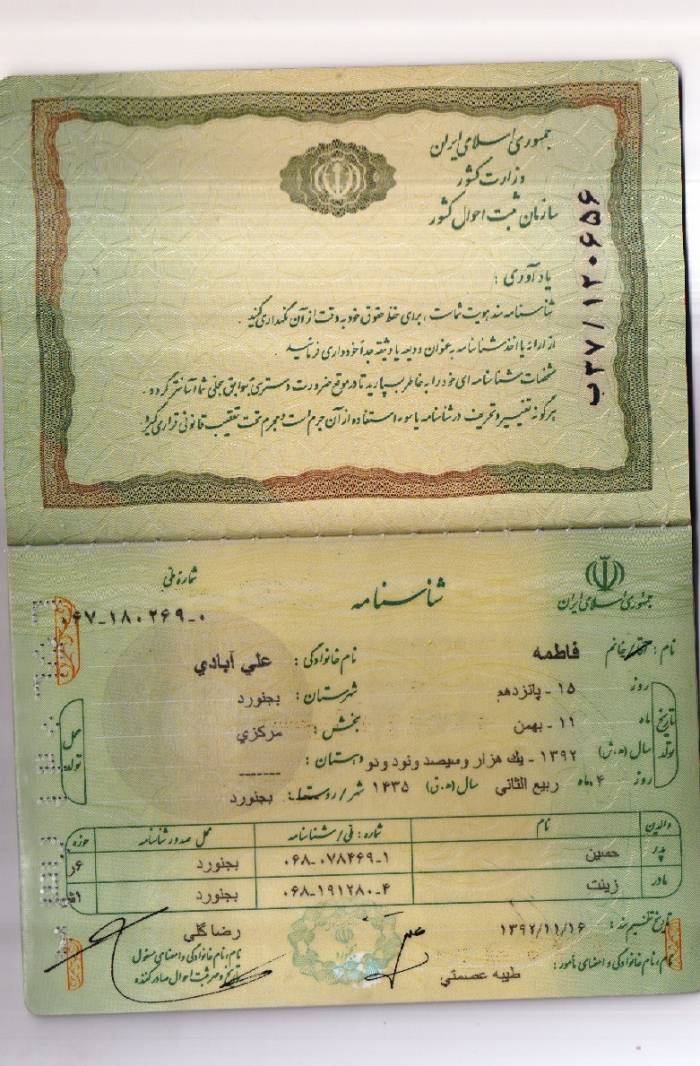 جمهوری اسلامی ایران
وزارت کشور
سازمان ثبت احوال کشور
ب۳۷/۱۲۰۶۵۶
یادآوری :
شناسنامه سند هویت شماست ، برای حفظ حقوق خود به دقت از آن نگهداری کنید
از ارائه یا اخذ شناسنامه به عنوان ودیعه یا وثیقه جداً خودداری فرمائید .
مشخصات شناسنامه ای خود را به خاطر بسپارید تا در موقع ضرورت دسترسی به سوابق سجلی شما آسانتر گردد .
هرگونه تغییر و تحریف در شناسنامه یا سوء استفاده از آن جرم است و مجرم تحت تعقیب قانونی قرار می گیرد .
جمهوری اسلامی ایران
شناسنامه
شماره ملی
۰۶۷-۱۸۰۲۶۹-۰
نام : آقا/خانم فاطمه نام خانوادگی : علي آبادي
تاریخ تولد
روز ۱۵ - پانزدهم
ماه ۱۱ - بهمن
سال (ه.ش) ۱۳۹۲ - يك هزار وسيصد ونود ودو
روز ۴ ماه ربيع الثاني سال (ه.ق) ۱۴۳۵
محل تولد
شهرستان : بجنورد
بخش : مرکزي
دهستان : ------
شهر/روستا : بجنورد
والدین نام شماره : ملی/شناسنامه محل صدور شناسنامه حوزه
پدر حسين ۰۶۸-۰۷۸۴۶۹-۱ بجنورد ۶ر
مادر زينت ۰۶۸-۱۹۱۲۸۰-۴ بجنورد
تاریخ تنظیم سند : ۱۳۹۲/۱۱/۱۶
نام، نام خانوادگی و امضای مأمور : طيبه عصمتي
رضا گلي
نام، نام خانوادگی و امضای مسئول
و مهر ثبت احوال صادرکننده